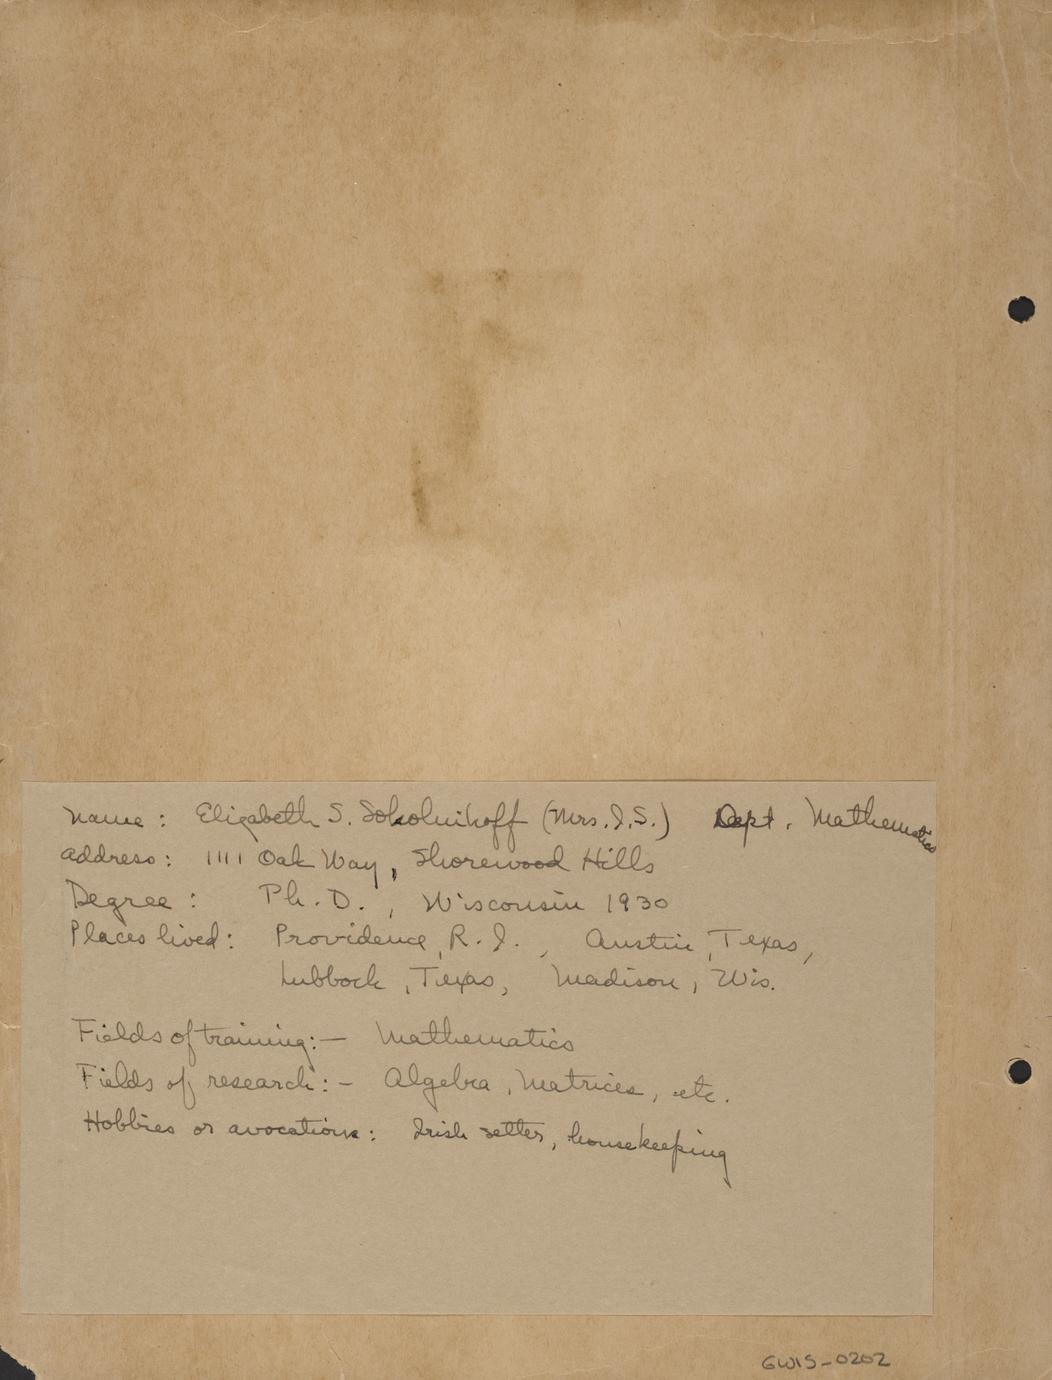 Name : Elizabeth S. Sokolnikoff (Mrs. I.S.) Dept. Mathematics
Address : 1111 Oak Way, Shorewood Hills
Degree : Ph. D. , Wisconsin 1930
Places lived : Providence, R. I. , Austin, Texas,
Lubbock, Texas, Madison, Wis.
Fields of training :— Mathematics
Fields of research : – Algebra, Matrices, etc.
Hobbies or avocations : Irish setter, housekeeping
GWIS-0202